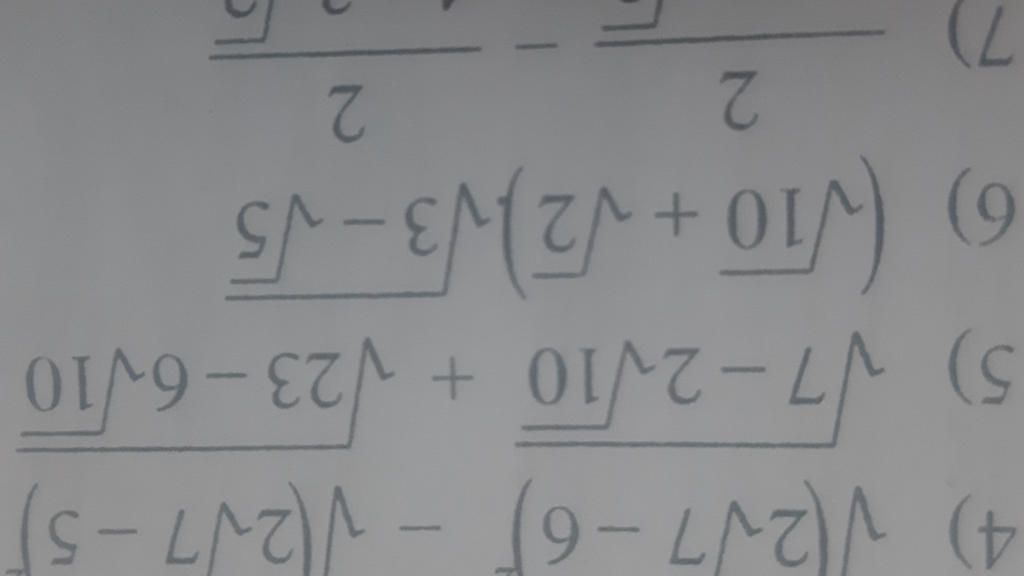 4) √(2√7 − 6)² − √(2√7 − 5)²
5) √(7 − 2√10) + √(23 − 6√10)
6) (√10 + √2)·√(3 − √5)
7) 2 − 2